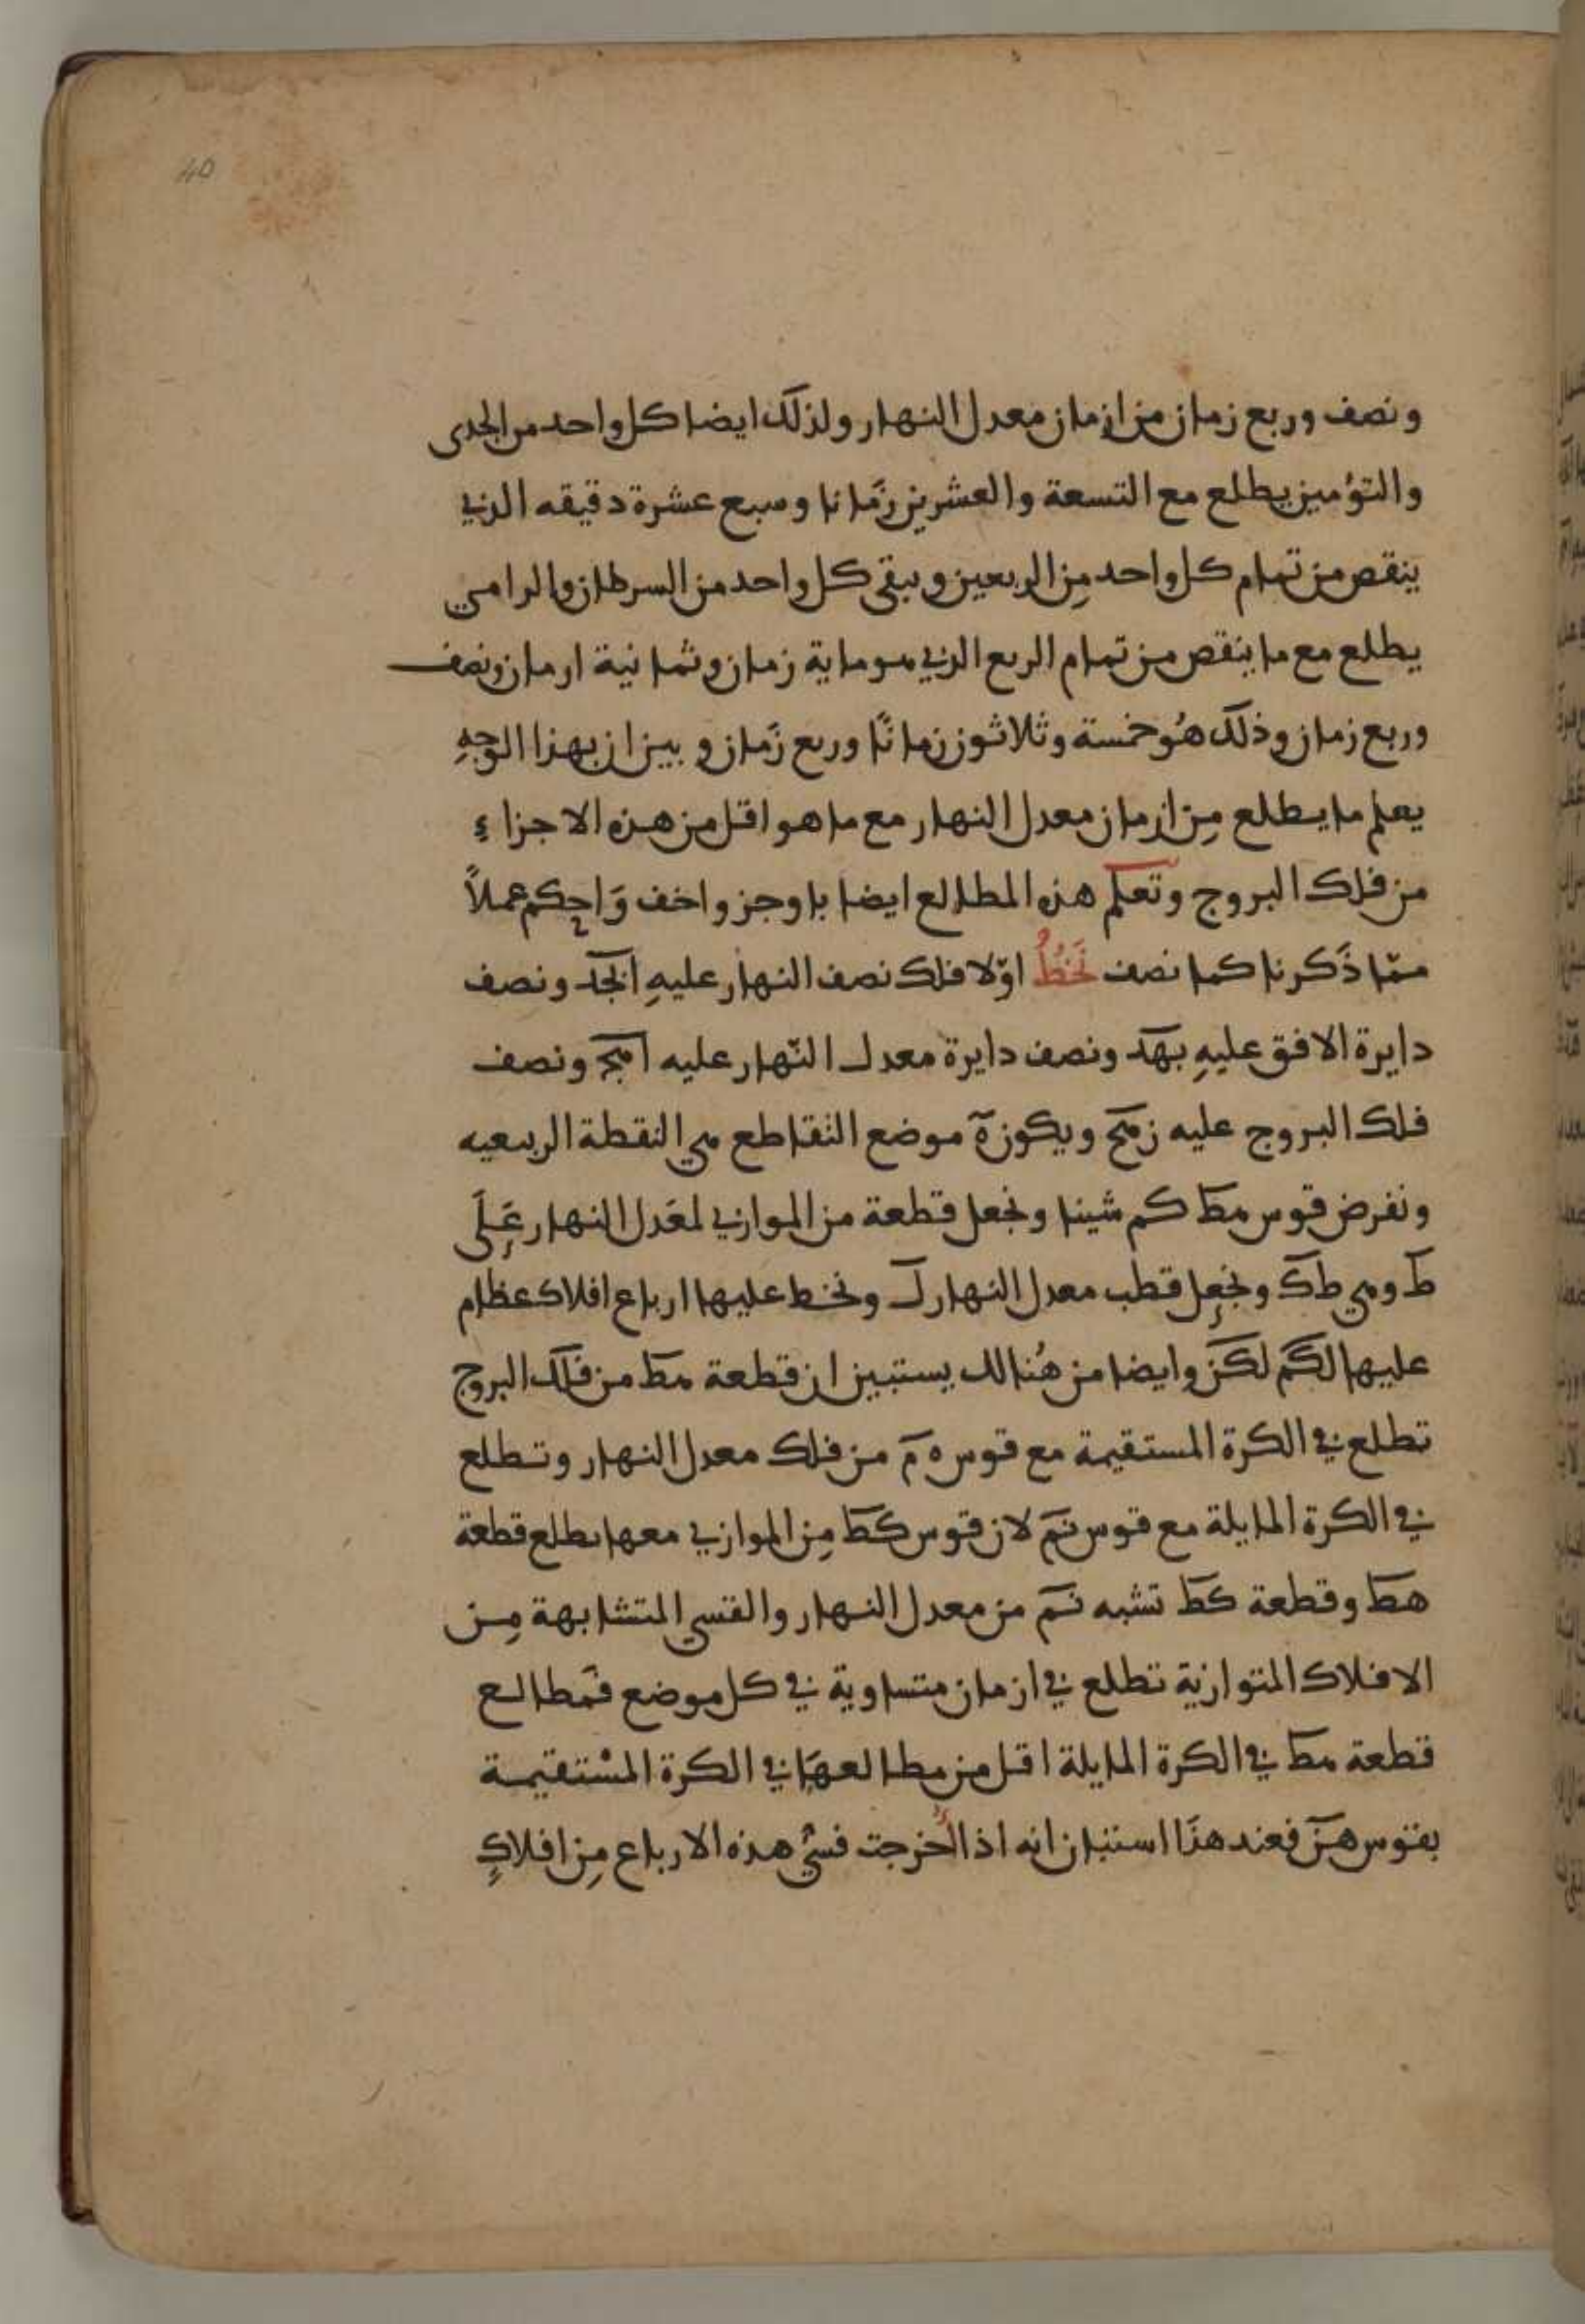 40
ونصف وربع زمان من ازمان معدل النهار ولذلك ايضا كل واحد من الجدى
والتؤمين يطلع مع التسعة والعشرين زمانا وسبع عشرة دقيقه الذي
ينقص من تمام كل واحد مِن الربعين ويبقى كل واحد من السرطان والرامي
يطلع مع ما ينقص من تمام الربع الذي هو ماية زمان وثمانية ازمان ونصف
وربع زمان وذلك هُو خمسة وثلاثون زمانًا وربع زمان وبين ان بهذا الوجهِ
يعلم ما يطلع مِن ازمان معدل النهار مع ما هو اقل من هذه الاجزاءِ
من فلك البروج وتعلم هذه المطالع ايضا باوجز واخف وَاحكم عملاً
ممّا ذَكرنا كما نصف نَخُطُّ اوّلا فلك نصف النهار عليهِ ابجد ونصف
دايرة الافق عليهِ بهد ونصف دايرة معدل النّهار عليه اهج ونصف
فلك البروج عليه زهح ويكون ه موضع التقاطع هي النقطة الربيعيه
ونفرض قوس هط كم شينا ونجعل قطعة من الموازي لمعَدل النهار عَلَى
ط وهي طك ونجعل قطب معدل النهار ل ونخط عليها ارباع افلاك عظام
عليها لطم لكن وايضا من هُنالك يستبين ان قطعة هط من فلك البروج
تطلع في الكرة المستقيمة مع قوس ه م من فلك معدل النهار وتطلع
في الكرة المايلة مع قوس نم لان قوس كط مِن الموازي معها يطلع قطعة
هط وقطعة كط تشبه نم من معدل النهار والقسي المتشابهة مِن
الافلاك المتوازية تطلع في ازمان متساوية في كل موضع فمطالع
قطعة هط في الكرة المايلة اقل من مطالعهَا في الكرة المسْتقيمة
بقوس هن فعند هذَا استبان انه اذا اخرجت قسي هذه الارباع مِن افلاكٍ